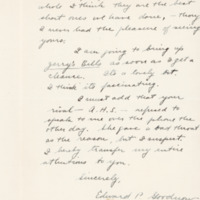 while I think they are the best
short ones we have done, - though
I never had the pleasure of seeing
yours,
I am going to bring up
Jerry's Bible as soon as I get a
chance. Its a lovely bit.
I think its fascinating.
I must add that your
rival - A.H.I. - refused to
speak to me over the phone the
other day. She gave a bad throat
as the reason but I suspect.
I hereby transfer my entire
attentions to you.
Sincerely,
Edward P. Goodnow